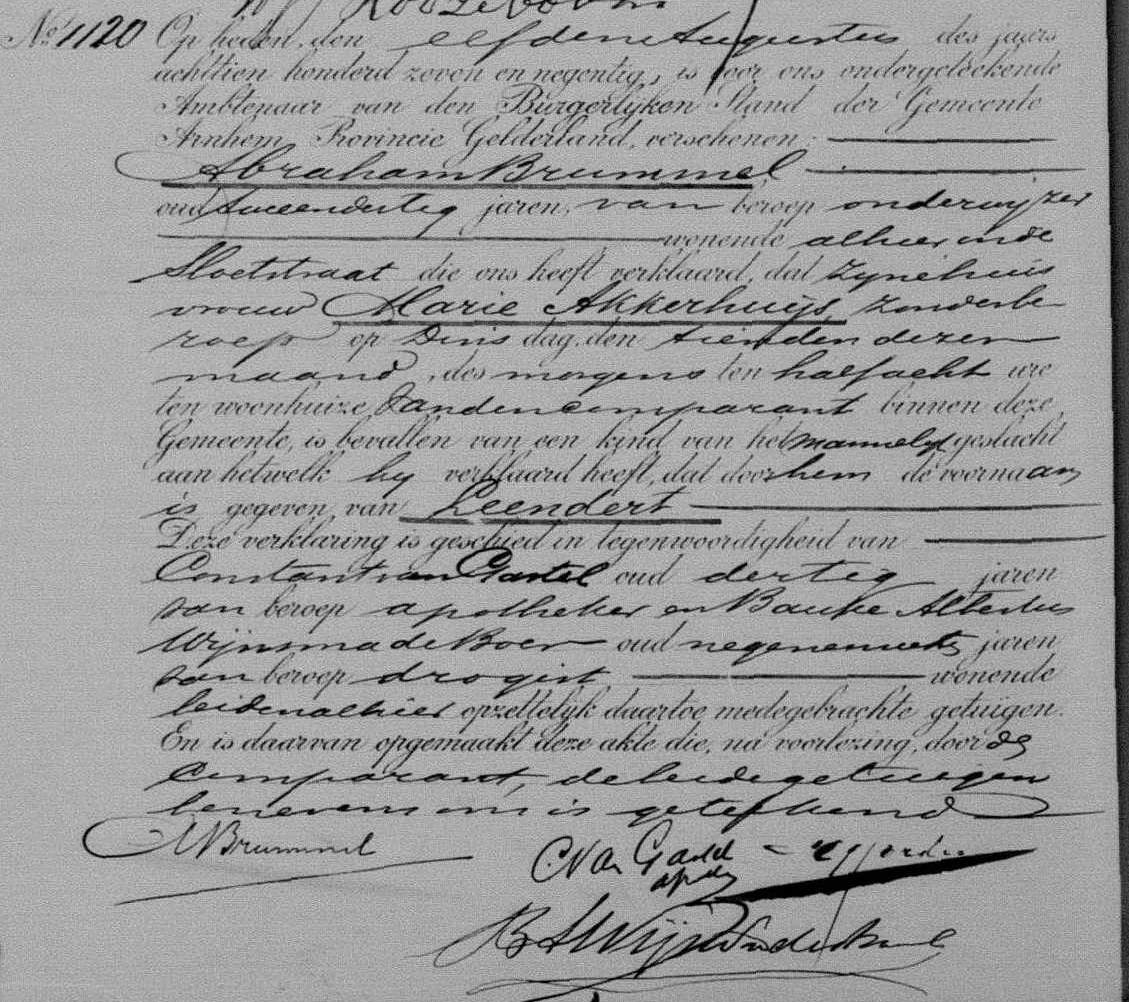 Roozeboom
No 1120 Op heden, den elfden Augustus des jaars
achttien honderd zeven en negentig, is voor ons ondergeteekende
Ambtenaar van den Burgerlijken Stand der Gemeente
Arnhem Provincie Gelderland, verschenen:
Abraham Brummel
oud tweeendertig jaren, van beroep onderwijzer
wonende alhier in de
Sloetstraat die ons heeft verklaard, dat zijne huis
vrouw Marie Akkerhuijs, zonder be
roep op Dins dag, den tienden dezer
maand, des morgens ten half acht ure
ten woonhuize van den comparant binnen deze
Gemeente, is bevallen van een kind van het mannelijk geslacht
aan hetwelk hij verklaard heeft, dat door hem de voornaam
is gegeven van Leendert
Deze verklaring is geschied in tegenwoordigheid van
Constant van Gastel oud dertig jaren
van beroep apotheker en Bauke Albertus
Wijnsma de Boer oud negenentwintig jaren
van beroep drogist wonende
beiden alhier opzettelijk daartoe medegebrachte getuigen.
En is daarvan opgemaakt deze akte die, na voorlezing, door de
comparant, de beide getuigen
benevens ons is geteekend
A Brummel
C Van Gastel
B A Wijnsma de Boer